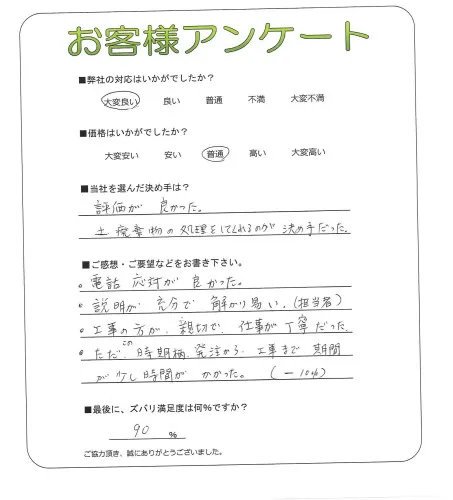 お客様アンケート
■弊社の対応はいかがでしたか?
大変良い 良い 普通 不満 大変不満
■価格はいかがでしたか?
大変安い 安い 普通 高い 大変高い
■当社を選んだ決め手は?
評価が 良かった。
土、廃棄物の処理をしてくれるのが 決め手だった。
■ご感想・ご要望などをお書き下さい。
。電話 応対が 良かった。
。説明が 充分で 解かり易い。(担当者)
。工事の方が、親切で、仕事が丁寧だった
。ただ、この時期柄、発注から、工事まで 期間
が少し時間が かかった。 (ー10%)
■最後に、ズバリ満足度は何%ですか?
90 %
ご協力頂き、誠にありがとうございました。